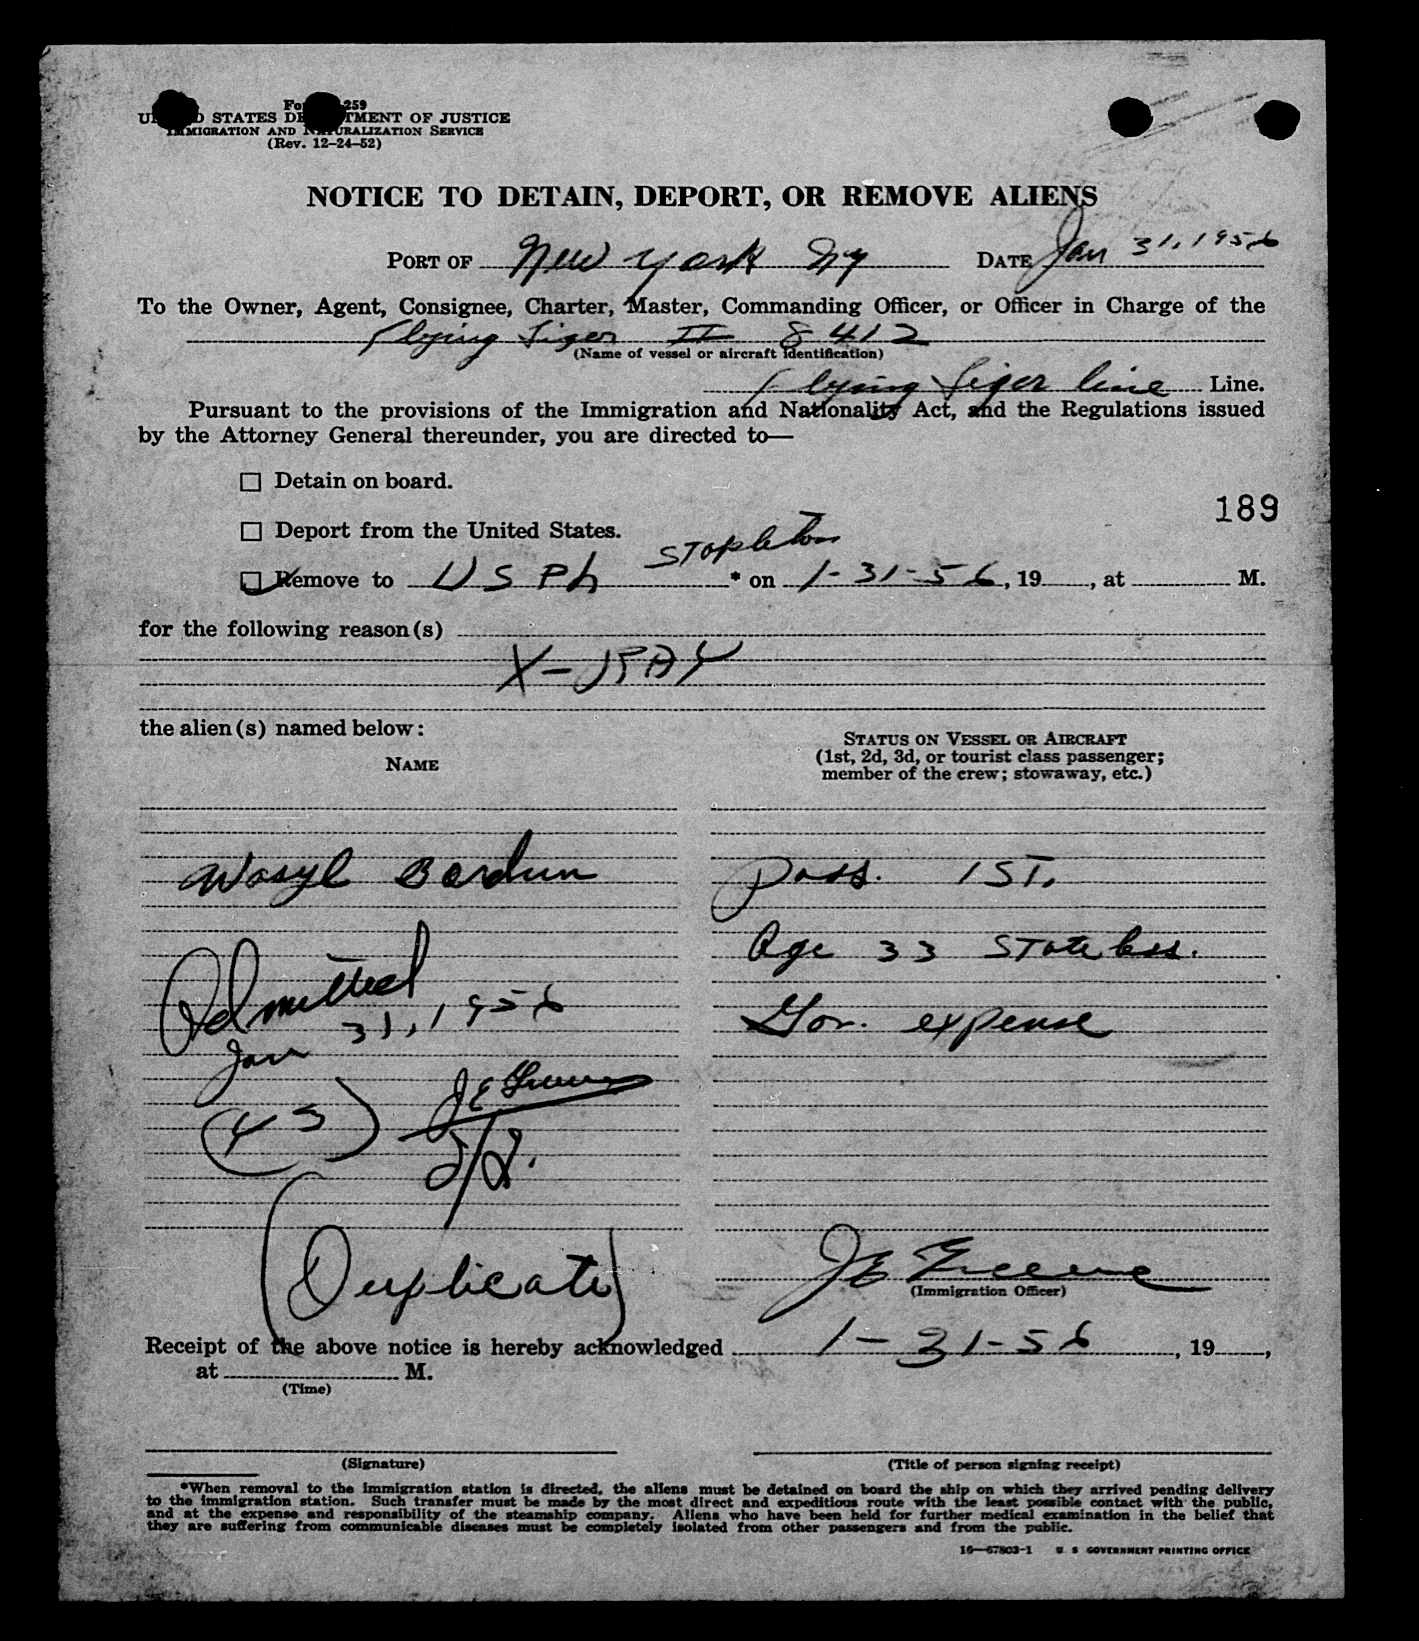 259
STATES DEPARTMENT OF JUSTICE
IMMIGRATION AND NATURALIZATION SERVICE
(Rev. 12-24-52)
NOTICE TO DETAIN, DEPORT, OR REMOVE ALIENS
PORT OF New York Ny DATE Jan 31, 1956
To the Owner, Agent, Consignee, Charter, Master, Commanding Officer, or Officer in Charge of the
Flying Tiger II 8412
(Name of vessel or aircraft identification)
Flying Tiger line Line.
Pursuant to the provisions of the Immigration and Nationality Act, and the Regulations issued
by the Attorney General thereunder, you are directed to—
☐ Detain on board.
189
☐ Deport from the United States.
Stapleton
☑ Remove to USPh * on 1-31-56, 19 , at M.
for the following reason(s)
X-RAY
the alien(s) named below:
STATUS ON VESSEL OR AIRCRAFT
(1st, 2d, 3d, or tourist class passenger;
member of the crew; stowaway, etc.)
NAME
Wasyl Bordun Pass. 1ST.
Age 33 Stateless.
Admitted
Jan 31, 1956 Gov. expense
JE Greene
(Duplicate)
JE Greene
(Immigration Officer)
Receipt of the above notice is hereby acknowledged 1-31-56, 19 ,
at M.
(Time)
(Signature) (Title of person signing receipt)
*When removal to the immigration station is directed, the aliens must be detained on board the ship on which they arrived pending delivery
to the immigration station. Such transfer must be made by the most direct and expeditious route with the least possible contact with the public,
and at the expense and responsibility of the steamship company. Aliens who have been held for further medical examination in the belief that
they are suffering from communicable diseases must be completely isolated from other passengers and from the public.
16—67803-1 U. S. GOVERNMENT PRINTING OFFICE